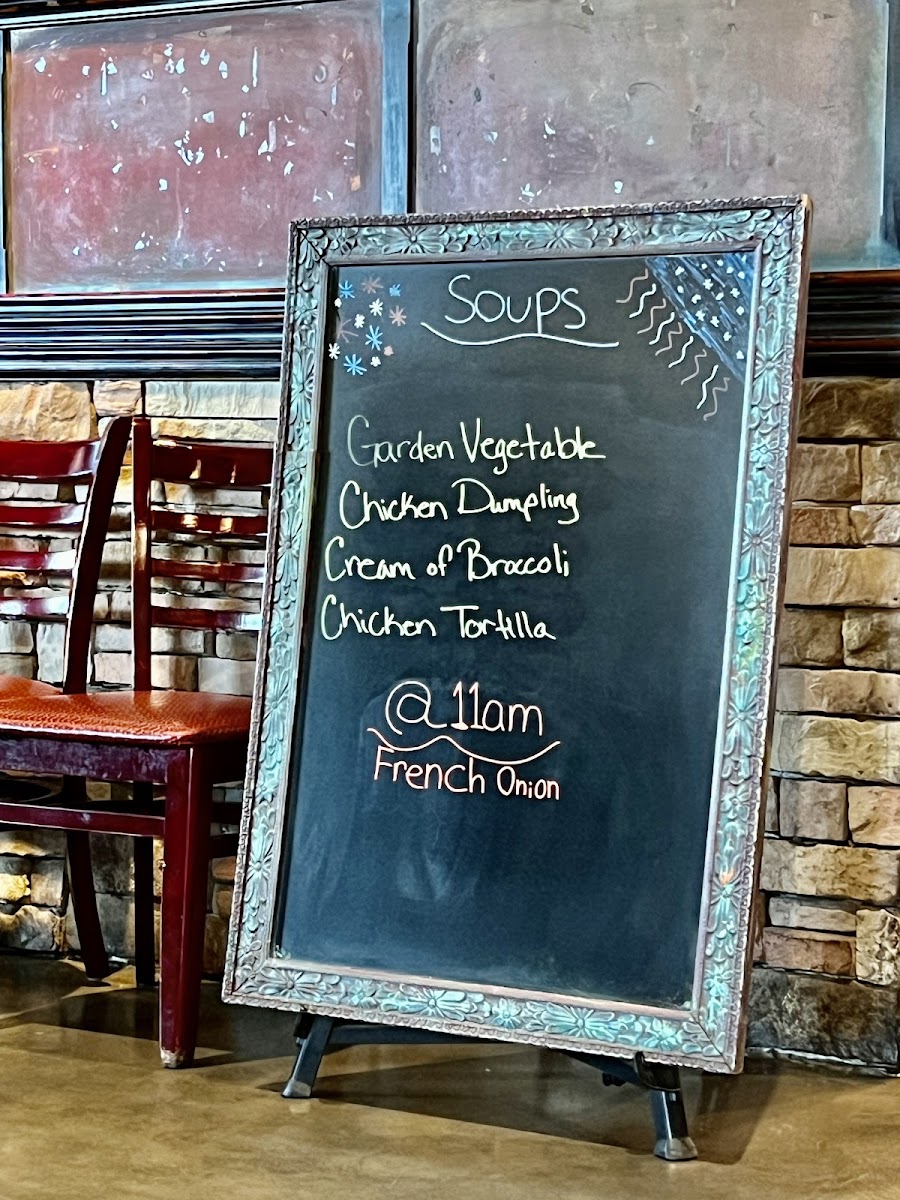 Soups
Garden Vegetable
Chicken Dumpling
Cream of Broccoli
Chicken Tortilla
@ 11am
French Onion